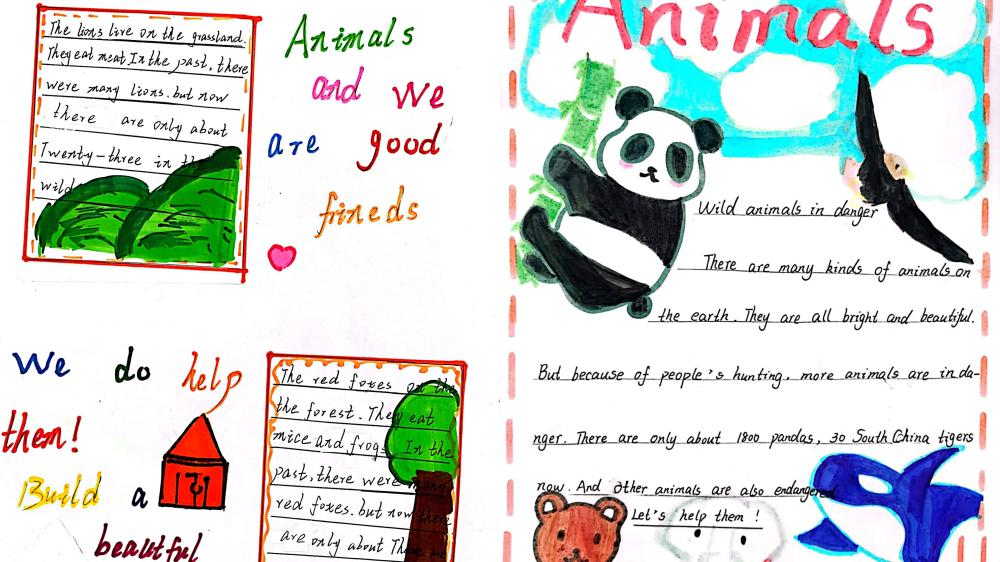 The lions live on the grassland.
They eat meat In the past, there
were many lions. but now
there are only about
Twenty-three in the
wild
Animals
and We
are good
frineds
We do help
them!
Build a
beautful
The red foxes on the
the forest. They eat
mice and frogs. In the
past, there were many
red foxes. but now there
are only about
Animals
Wild animals in danger
There are many kinds of animals on
the earth. They are all bright and beautiful.
But because of people's hunting, more animals are in da-
nger. There are only about 1800 pandas, 30 South China tigers
now. And other animals are also endangered
Let's help them !